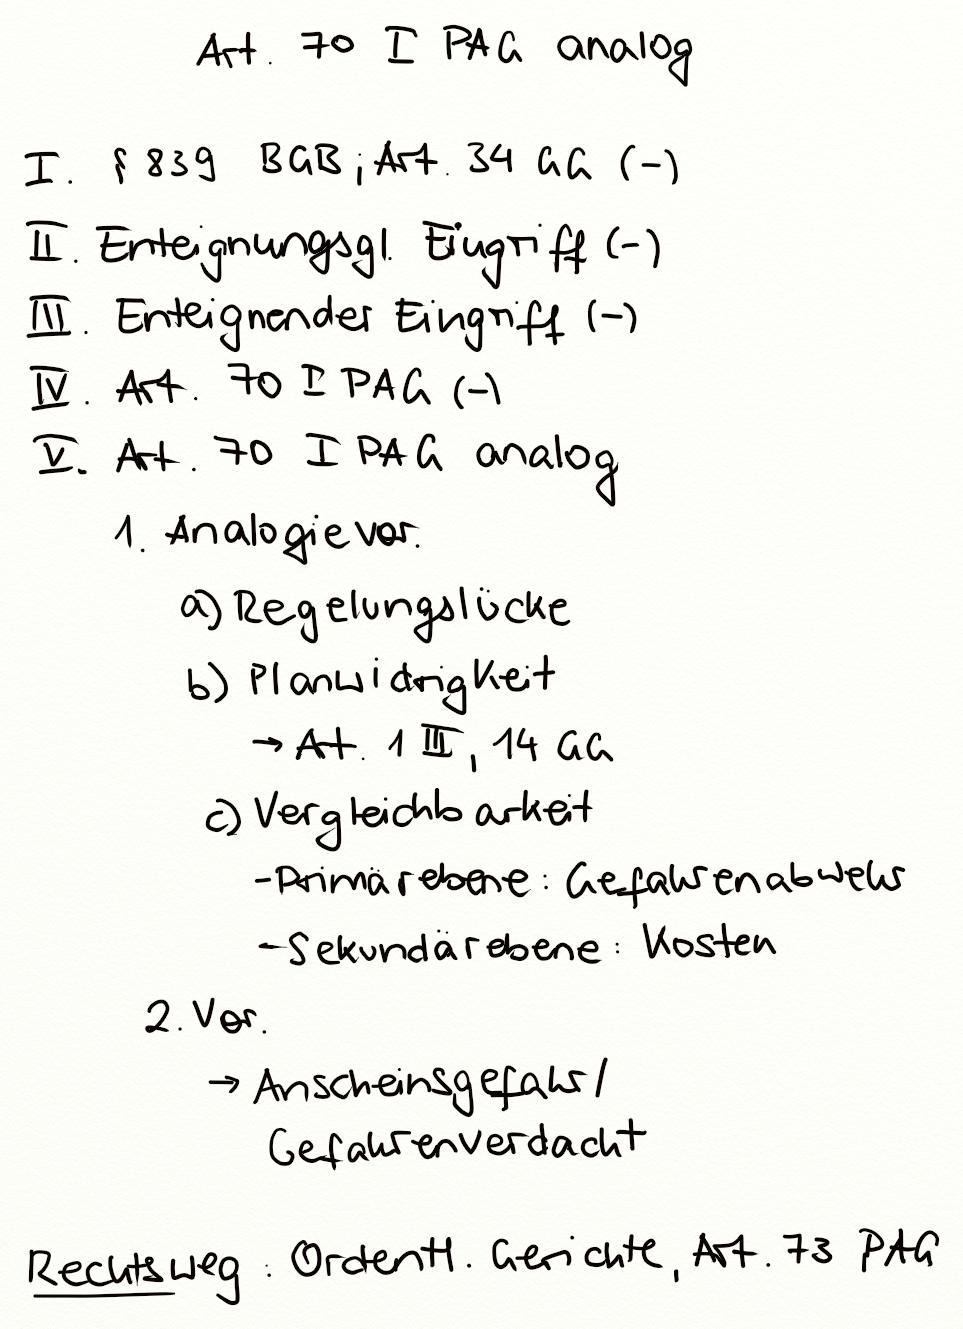 Art. 70 I PAG analog
I. § 839 BGB; Art. 34 GG (-)
II. Enteignungsgl. Eingriff (-)
III. Enteignender Eingriff (-)
IV. Art. 70 I PAG (-)
V. Art. 70 I PAG analog
1. Analogievor.
a) Regelungslücke
b) Planwidrigkeit
→ Art. 1 III, 14 GG
c) Vergleichbarkeit
- Primärebene: Gefahrenabwehr
- Sekundärebene: Kosten
2. Vor.
→ Anscheinsgefahr/
Gefahrenverdacht
Rechtsweg: Ordentl. Gerichte, Art. 73 PAG